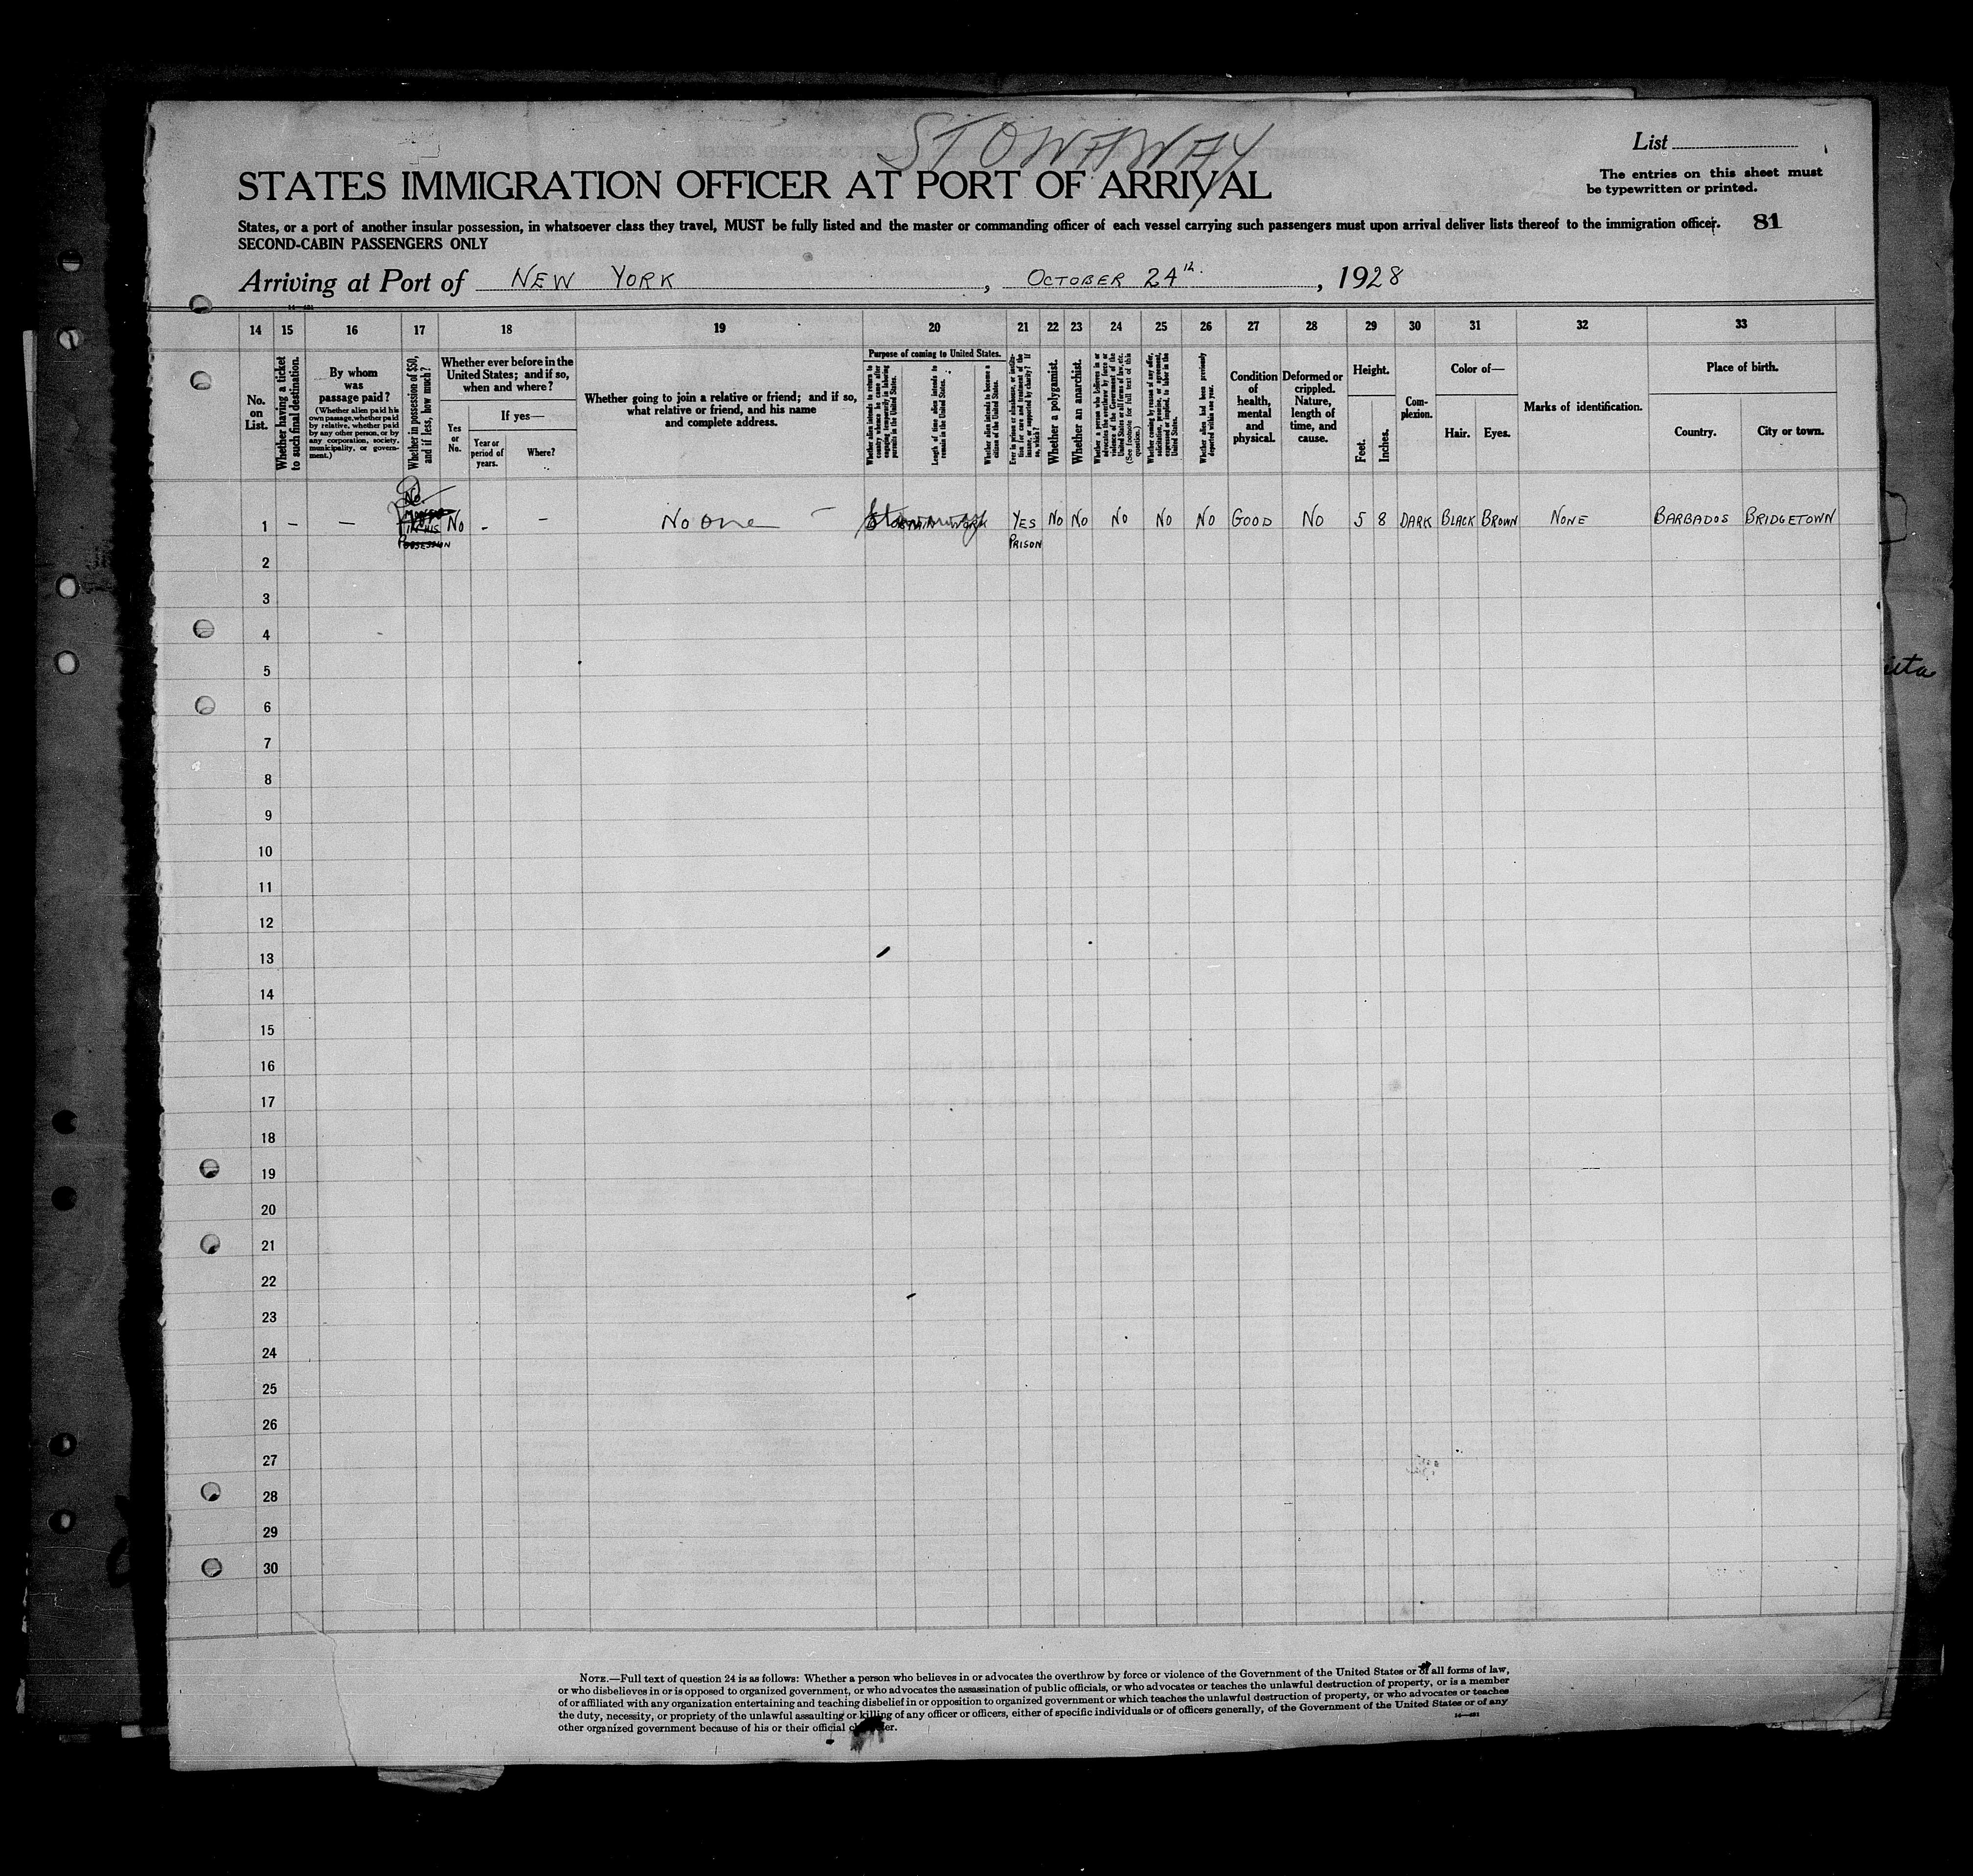 STOWAWAY
List
STATES IMMIGRATION OFFICER AT PORT OF ARRIVAL
The entries on this sheet must
be typewritten or printed.
States, or a port of another insular possession, in whatsoever class they travel, MUST be fully listed and the master or commanding officer of each vessel carrying such passengers must upon arrival deliver lists thereof to the immigration officer.
81
SECOND-CABIN PASSENGERS ONLY
Arriving at Port of NEW YORK, OCTOBER 24th, 1928
14 15 16 17 18 19 20 21 22 23 24 25 26 27 28 29 30 31 32 33
No. on List.
Whether having a ticket to such final destination.
By whom was passage paid?
(Whether alien paid his own passage, whether paid by relative, whether paid by any other person, or by any corporation, society, municipality, or government.)
Whether in possession of $50, and if less, how much?
Whether ever before in the United States; and if so, when and where?
Yes or No.
If yes—
Year or period of years.
Where?
Whether going to join a relative or friend; and if so, what relative or friend, and his name and complete address.
Purpose of coming to United States.
Whether alien intends to return to country whence he came after engaging temporarily in laboring pursuits in the United States.
Length of time alien intends to remain in the United States.
Whether alien intends to become a citizen of the United States.
Ever in prison or almshouse, or institution for care and treatment of the insane, or supported by charity? If so, which?
Whether a polygamist.
Whether an anarchist.
Whether a person who believes in or advocates the overthrow by force or violence of the Government of the United States or all forms of law, etc. (See footnote for full text of this question.)
Whether coming by reason of any offer, solicitation, promise, or agreement, expressed or implied, to labor in the United States.
Whether alien had been previously deported within one year.
Condition of health, mental and physical.
Deformed or crippled. Nature, length of time, and cause.
Height.
Feet.
Inches.
Complexion.
Color of—
Hair.
Eyes.
Marks of identification.
Place of birth.
Country.
City or town.
1 – – No MONEY IN HIS POSSESSION No - – No one – Stowaway YES PRISON No No No No No GOOD No 5 8 DARK BLACK BROWN NONE BARBADOS BRIDGETOWN
2
3
4
5
6
7
8
9
10
11
12
13
14
15
16
17
18
19
20
21
22
23
24
25
26
27
28
29
30
NOTE.—Full text of question 24 is as follows: Whether a person who believes in or advocates the overthrow by force or violence of the Government of the United States or of all forms of law,
or who disbelieves in or is opposed to organized government, or who advocates the assassination of public officials, or who advocates or teaches the unlawful destruction of property, or is a member
of or affiliated with any organization entertaining and teaching disbelief in or opposition to organized government or which teaches the unlawful destruction of property, or who advocates or teaches
the duty, necessity, or propriety of the unlawful assaulting or killing of any officer or officers, either of specific individuals or of officers generally, of the Government of the United States or of any
other organized government because of his or their official